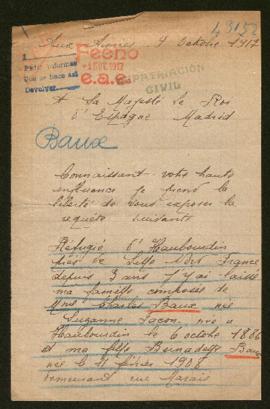 43152
9 Octobre 1917
Fecho
e.a.e.
REPATRIACIÓN
CIVIL
Pedir informes
Que se hace así
Devolver.
A Sa Majesté le Roi
d'Espagne Madrid
Baux
Connaissant votre haute
influence je prend la
liberté de vous exposer la
requête suivante
Réfugié d'Haubourdin
près de Lille Nord France
depuis 3 ans j'y ai laissé
ma famille composée de
Mme Charles Baux, née
Suzanne Facon, née a
Haubourdin le 6 octobre 1886
et ma fille Bernadette Baux
née le 11 février 1908
demeurant rue Marais